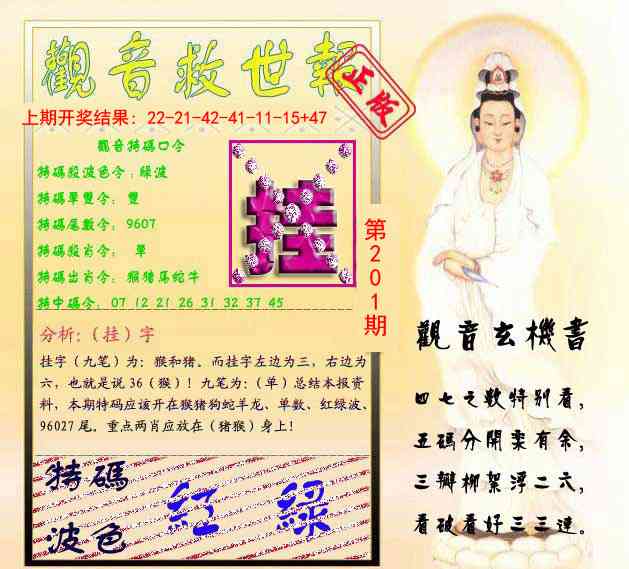 觀音救世報
正版
上期开奖结果：22-21-42-41-11-15+47
觀音特碼口令
特碼殺波色令：綠波
特碼單雙令： 雙
特碼尾數令： 9607
特碼殺肖令： 單
特碼出肖令： 猴猪馬蛇牛
特中碼令： 07 12 21 26 31 32 37 45
挂
第201期
分析:（挂）字
挂字（九笔）为：猴和猪。而挂字左边为三，右边为
六，也就是说36（猴）！九笔为：（单）总结本报资
料，本期特码应该开在猴猪狗蛇羊龙、单数、红绿波、
96027尾。重点两肖应放在（猪猴）身上！
特碼
波色
紅 綠
觀音玄機書
四七之数特别看，
五碼分開案有余，
三瓣柳絮浮二六，
看破看好三三連。